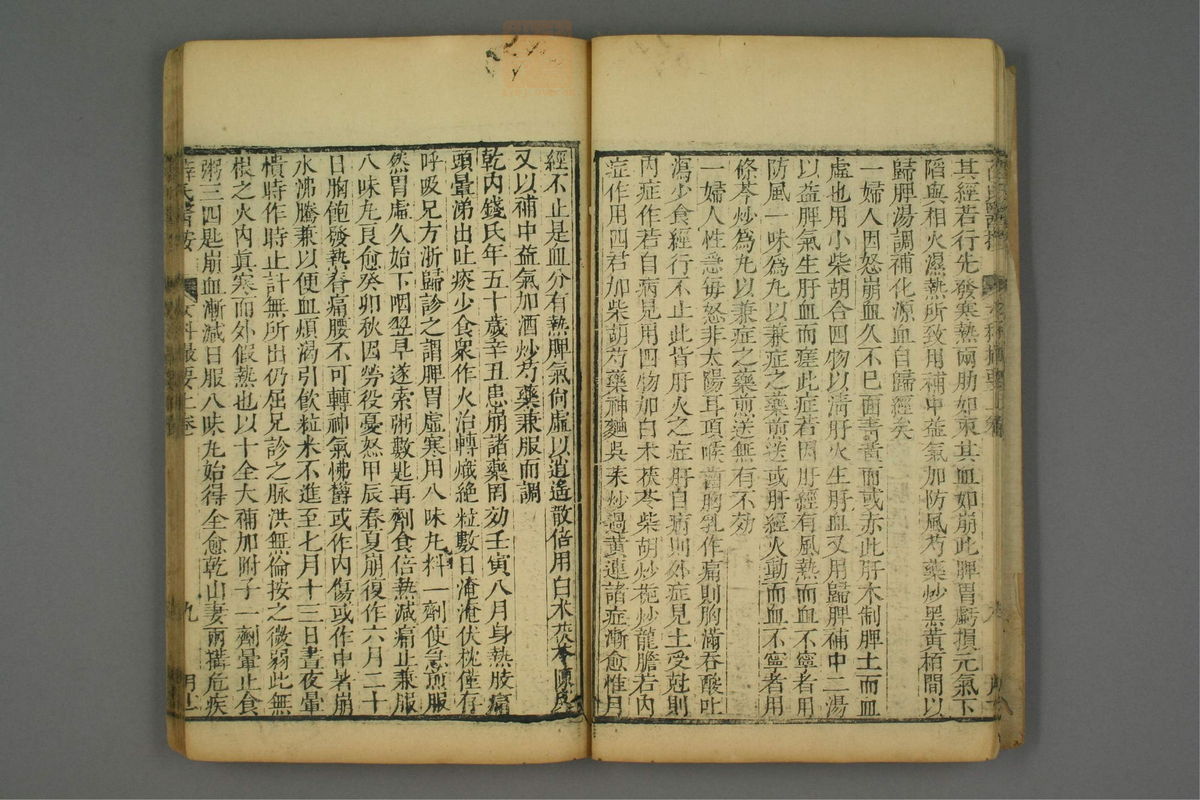 其經若行先發寒熱兩肋如束其血如崩此脾胃虧損元氣下
陷與相火濕熱所致用補中益氣加防風芍藥炒黑黃栢間以
歸脾湯調補化源血自歸經矣
一婦人因怒崩血久不已面靑黃而或赤此肝木制脾土而血
虛也用小柴胡合四物以淸肝火生肝血又用歸脾補中二湯
以益脾氣生肝血而瘥此症若因肝經有風熱而血不寧者用
防風一味爲丸以兼症之藥煎送或肝經火動而血不寧者用
條芩炒爲丸以兼症之藥煎送無有不効
一婦人性急每怒非太陽耳項喉齒胸乳作痛則胸滿吞酸吐
瀉少食經行不止此皆肝火之症肝自病則外症見土受尅則
內症作若自病見用四物加白术茯苓柴胡炒梔炒龍膽若內
症作用四君加柴胡芍藥神麯吳茱炒過黃連諸症漸愈惟月
經不止是血分有熱脾氣尙虛以逍遙散倍用白术茯苓陳皮
又以補中益氣加酒炒芍藥兼服而調
乾內錢氏年五十歲辛丑患崩諸藥罔効壬寅八月身熱肢痛
頭暈涕出吐痰少食衆作火治轉熾絶粒數日淹淹伏枕僅存
呼吸兄方浙歸診之謂脾胃虛寒用八味丸料一劑使急煎服
然胃虛久始下咽翌早遂索粥數匙再劑食倍熱減痛止兼服
八味丸良愈癸卯秋因勞役憂怒甲辰春夏崩復作六月二十
日胸飽發熱脊痛腰不可轉神氣怫欝或作內傷或作中暑崩
水沸騰兼以便血煩渴引飮粒米不進至七月十三日晝夜暈
憒時作時止計無所出仍屈兄診之脉洪無倫按之微弱此無
根之火內眞寒而外假熱也以十全大補加附子一劑暈止食
粥三四匙崩血漸減日服八味丸始得全愈乾山妻兩構危疾
薛氏醫按
女科撮要上卷
九